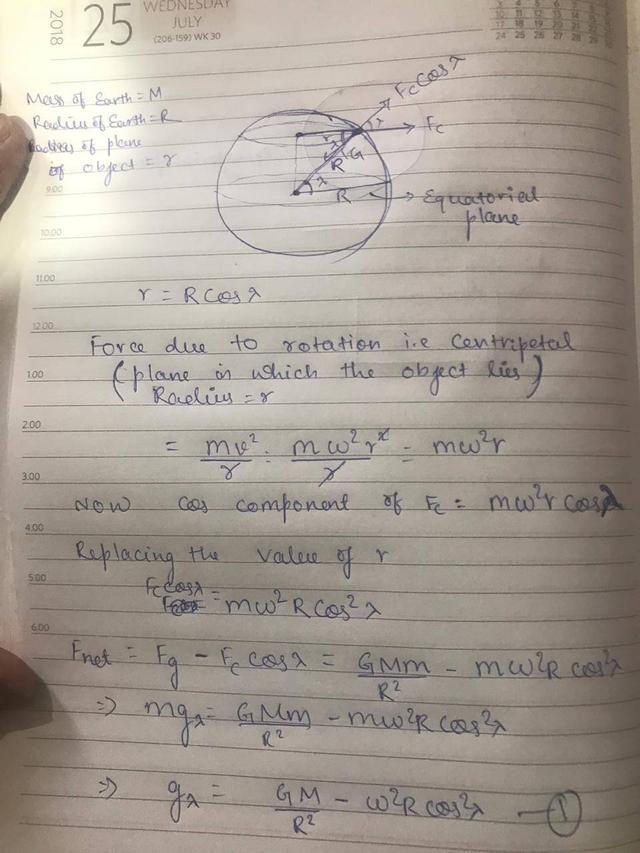 2018
25
WEDNESDAY
JULY
(206-159) WK 30
Mass of Earth = M
Radius of Earth = R
Radius of plane
of object = r
Fc Cosλ
λ
Fc
r
λ
R
G
λ
R
→ Equatorial
plane
9.00
10.00
11.00
r = R Cosλ
12.00
Force due to rotation i.e Centripetal
1.00
(plane in which the object lies)
Radius = r
2.00
= mv²/r = mω²r²/r = mω²r
3.00
Now Cos component of Fc = mω²r Cosλ
4.00
Replacing the value of r
5.00
Fc Cosλ = mω²R Cos²λ
6.00
Fnet = Fg − Fc Cosλ = GMm/R² − mω²R Cos²λ
⇒ mgλ = GMm/R² − mω²R Cos²λ
⇒ gλ = GM/R² − ω²R Cos²λ — ①